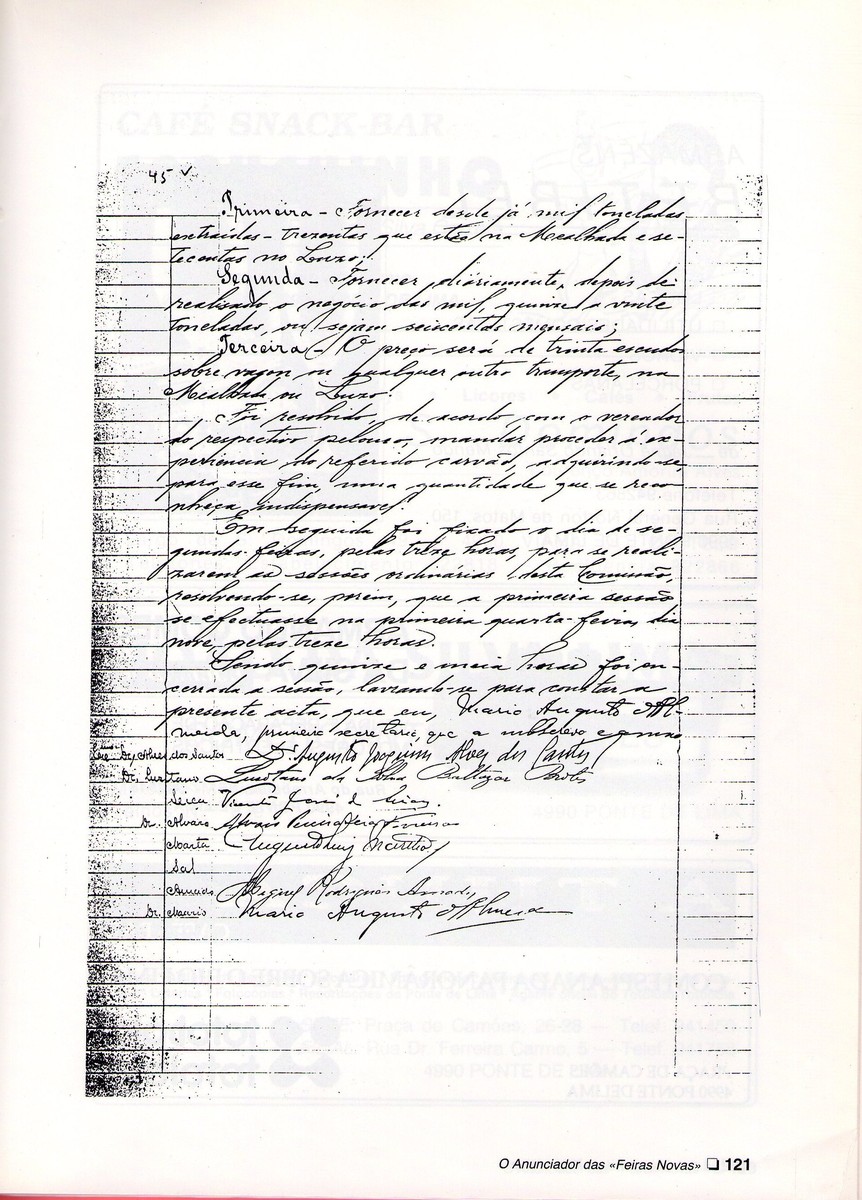 45 v
Primeira - Fornecer desde já mil toneladas
extraidas - trezentas que estão na Mealhada e se-
tecentas no Luzo;
Segunda - Fornecer, diáriamente, depois de
realizado o negócio das mil, quinze a vinte
toneladas, ou sejam seiscentas mensais;
Terceira - O preço será de trinta escudos
sobre vagon ou qualquer outro transporte, na
Mealhada ou Luzo.
Foi resolvido, de acordo, com o vereador
do respectivo pelouro, mandar proceder á ex-
periencia do referido carvão, adquirindo-se,
para esse fim, uma quantidade que se reco-
nheça indispensavel.
Em seguida foi fixado o dia de se-
gundas-feiras, pelas treze horas, para se reali-
zarem as sessões ordinárias desta Comissão,
resolvendo-se, porém, que a primeira sessão
se efectuasse na primeira quarta-feira, dia
nove, pelas treze horas.
Sendo quinze e meia horas foi en-
cerrada a sessão, lavrando-se para constar a
presente acta, que eu, Mario Augusto d'Al-
meida, primeiro secretario, que a subscrevo e assino
Dr. Alves dos Santos Dr. Augusto Joaquim Alves dos Santos
Dr. Luzitano
Vicente José
Dr. Alvaro Alvaro
Sal
Miguel Rodrigues
Dr. Mario Mario Augusto d'Almeida
O Anunciador das «Feiras Novas» ❏ 121
CAFÉ SNACK-BAR
ARMAZENS
COM ESPLANADA PANORÂMICA SOBRE O RIO LIMA
4990 PONTE DE LIMA